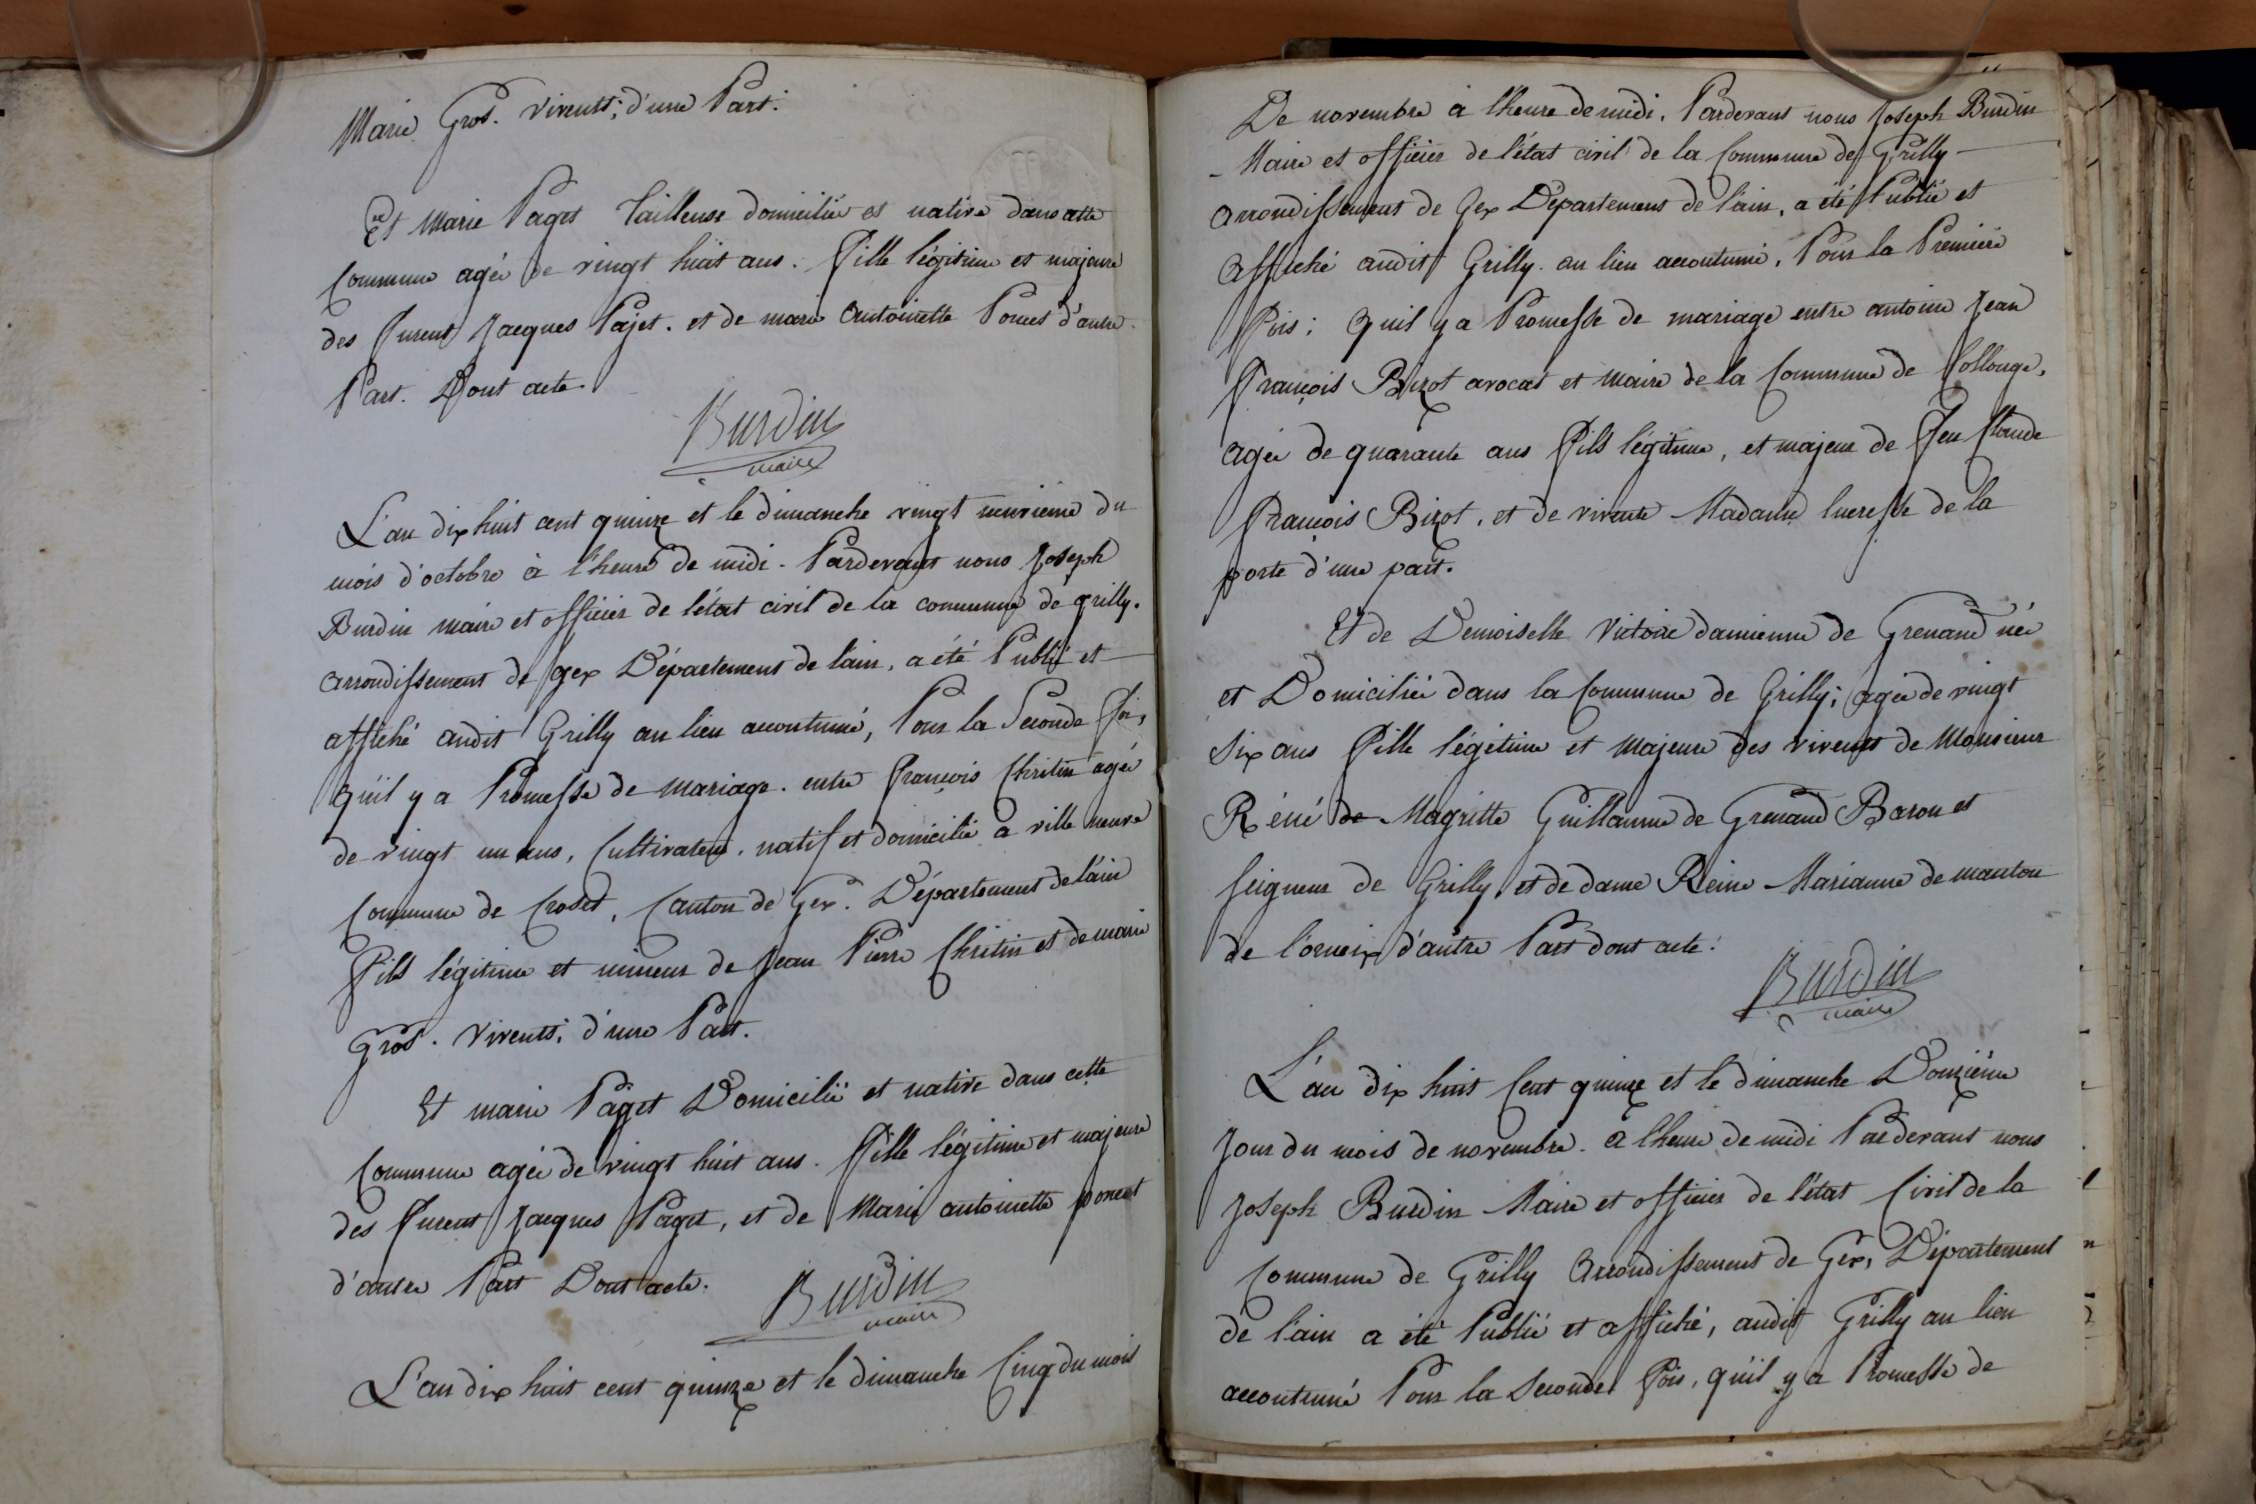 Marie Gros. vivents; d'une Part.
Et Marie Paget Tailleuse domicilié et native dans cette
Commune agée de vingt huit ans. Fille légitime et majeure
des furent Jacques Pajet. et de marie Antoinette Poncet d'autre
Part. Dont acte.
Burdin
maire
L'an dix huit cent quinze et le dimanche vingt neuvieme du
mois d'octobre à l'heure de midi. Pardevant nous Joseph
Burdin maire et officier de l'état civil de la commune de grilly.
arrondissement de gex Département de l'ain, a été Publié et
affiché audit Grilly au lieu accoutumé, Pour la Seconde fois,
qu'il y a Promesse de mariage. entre françois Chritin agée
de vingt un ans, Cultivateur, natif et domicilié a ville neuve
Commune de Croset, Canton de Gex. Département de l'ain
Fils légitime et mineur de Jean Pierre Chritin et de marie
Gros. vivents; d'une Part.
Et marie Paget Domicilié et native dans cette
Commune agée de vingt huit ans. Fille légitime et majeure
des furent Jacques Paget, et de Marie antoinette poncet
d'autre Part Dont acte.
Burdin
maire
L'an dix huit cent quinze et le dimanche Cinq du mois
De novembre à l'heure de midi. Pardevant nous Joseph Burdin
Maire et officier de l'état civil de la Commune de Grilly
arrondissement de Gex Département de l'ain, a été Publié et
affiché audit Grilly. au lieu accoutumé, Pour la Premiere
Fois; qu'il y a Promesse de mariage entre antoine Jean
François Bizot avocat et maire de la Commune de Collonge,
agée de quarante ans Fils légitime, et majeur de Feu Claude
François Bizot, et de vivente Madame lucresse de la
porte d'une part.
Et de Demoiselle Victoire damienne de Grenaud née
et Domiciliée dans la Commune de Grilly; agée de vingt
Six ans Fille légitime et Majeure des vivents de Monsieur
Réné de Magritte Guillaume de Grenaud Baron et
Seigneur de Grilly et de dame Reine Marianne de manton
de l'orneix d'autre Part dont acte.
Burdin
maire
L'an dix huit Cent quinze et le dimanche Douzième
Jour du mois de novembre. a l'heure de midi Pardevant nous
Joseph Burdin Maire et officier de l'état Civil de la
Commune de Grilly Arrondissement de Gex, Département
de l'ain a été Publié et affiché, audit Grilly au lieu
accoutumé Pour la Seconde Fois, qu'il y a Promesse de